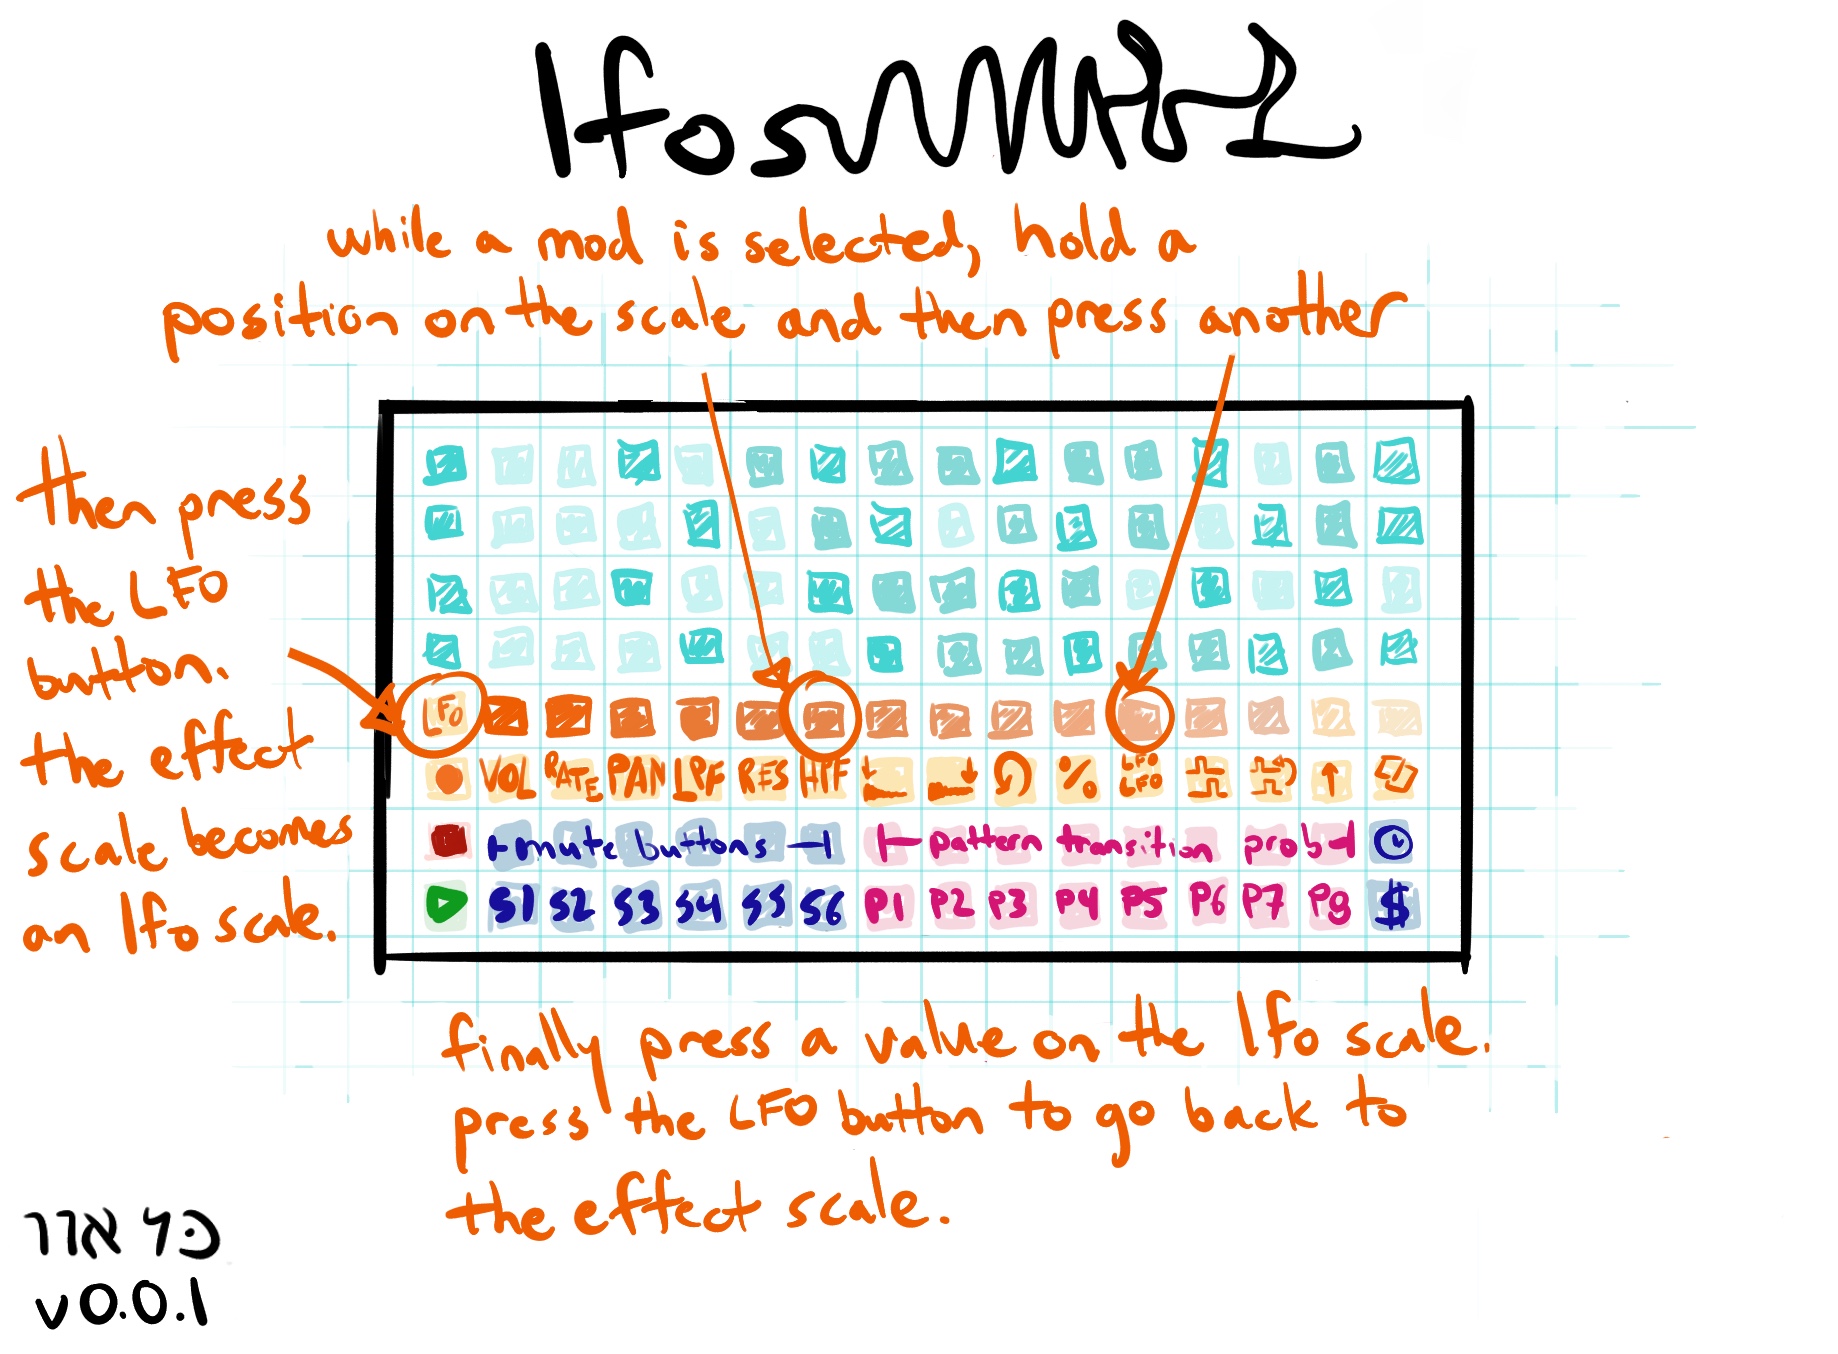 lfos
while a mod is selected, hold a
position on the scale and then press another
then press
the LFO
button.
the effect
scale becomes
an lfo scale.
LFO
VOL RATE PAN LPF RES HPF % LFO LFO
mute buttons pattern transition prob
S1 S2 S3 S4 S5 S6 P1 P2 P3 P4 P5 P6 P7 P8 $
finally press a value on the lfo scale.
press the LFO button to go back to
the effect scale.
v0.0.1